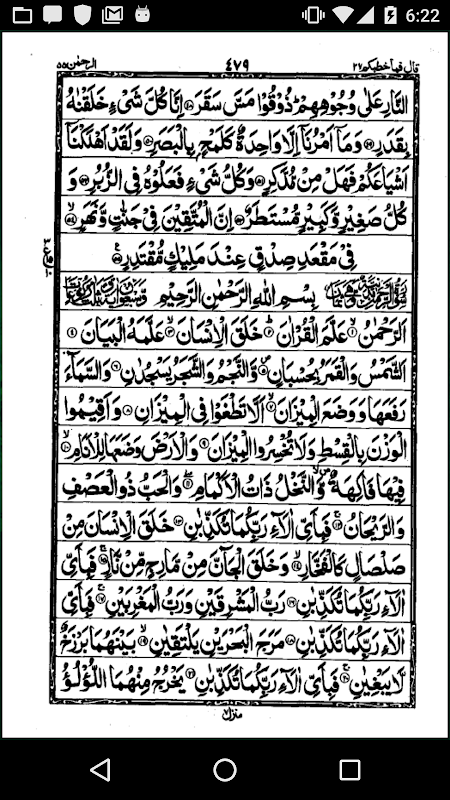 6:22
قال فما خطبكم ٢٧ ٤٧٩ الرحمٰن ٥٥
النَّارِ عَلٰى وُجُوْهِهِمْ ؕ ذُوْقُوْا مَسَّ سَقَرَ ﴿۴۸﴾ اِنَّا كُلَّ شَیْءٍ خَلَقْنٰهُ
بِقَدَرٍ ﴿۴۹﴾ وَمَاۤ اَمْرُنَاۤ اِلَّا وَاحِدَةٌ كَلَمْحٍۭ بِالْبَصَرِ ﴿۵۰﴾ وَلَقَدْ اَهْلَكْنَاۤ
اَشْیَاعَكُمْ فَهَلْ مِنْ مُّدَّكِرٍ ﴿۵۱﴾ وَكُلُّ شَیْءٍ فَعَلُوْهُ فِی الزُّبُرِ ﴿۵۲﴾ وَ
كُلُّ صَغِیْرٍ وَّكَبِیْرٍ مُّسْتَطَرٌ ﴿۵۳﴾ اِنَّ الْمُتَّقِیْنَ فِیْ جَنّٰتٍ وَّنَهَرٍ ﴿۵۴﴾
فِیْ مَقْعَدِ صِدْقٍ عِنْدَ مَلِیْكٍ مُّقْتَدِرٍ ﴿۵۵﴾
بِسْمِ اللهِ الرَّحْمٰنِ الرَّحِیْمِ
اَلرَّحْمٰنُ ﴿۱﴾ عَلَّمَ الْقُرْاٰنَ ﴿۲﴾ خَلَقَ الْاِنْسَانَ ﴿۳﴾ عَلَّمَهُ الْبَیَانَ ﴿۴﴾
اَلشَّمْسُ وَالْقَمَرُ بِحُسْبَانٍ ﴿۵﴾ وَّالنَّجْمُ وَالشَّجَرُ یَسْجُدٰنِ ﴿۶﴾ وَالسَّمَآءَ
رَفَعَهَا وَوَضَعَ الْمِیْزَانَ ﴿۷﴾ اَلَّا تَطْغَوْا فِی الْمِیْزَانِ ﴿۸﴾ وَاَقِیْمُوا
الْوَزْنَ بِالْقِسْطِ وَلَا تُخْسِرُوا الْمِیْزَانَ ﴿۹﴾ وَالْاَرْضَ وَضَعَهَا لِلْاَنَامِ ﴿۱۰﴾
فِیْهَا فَاكِهَةٌ وَّالنَّخْلُ ذَاتُ الْاَكْمَامِ ﴿۱۱﴾ وَالْحَبُّ ذُو الْعَصْفِ
وَالرَّیْحَانُ ﴿۱۲﴾ فَبِاَیِّ اٰلَآءِ رَبِّكُمَا تُكَذِّبٰنِ ﴿۱۳﴾ خَلَقَ الْاِنْسَانَ مِنْ
صَلْصَالٍ كَالْفَخَّارِ ﴿۱۴﴾ وَخَلَقَ الْجَآنَّ مِنْ مَّارِجٍ مِّنْ نَّارٍ ﴿۱۵﴾ فَبِاَیِّ
اٰلَآءِ رَبِّكُمَا تُكَذِّبٰنِ ﴿۱۶﴾ رَبُّ الْمَشْرِقَیْنِ وَرَبُّ الْمَغْرِبَیْنِ ﴿۱۷﴾ فَبِاَیِّ
اٰلَآءِ رَبِّكُمَا تُكَذِّبٰنِ ﴿۱۸﴾ مَرَجَ الْبَحْرَیْنِ یَلْتَقِیٰنِ ﴿۱۹﴾ بَیْنَهُمَا بَرْزَخٌ
لَّا یَبْغِیٰنِ ﴿۲۰﴾ فَبِاَیِّ اٰلَآءِ رَبِّكُمَا تُكَذِّبٰنِ ﴿۲۱﴾ یَخْرُجُ مِنْهُمَا اللُّؤْلُؤُ
منزل ٧